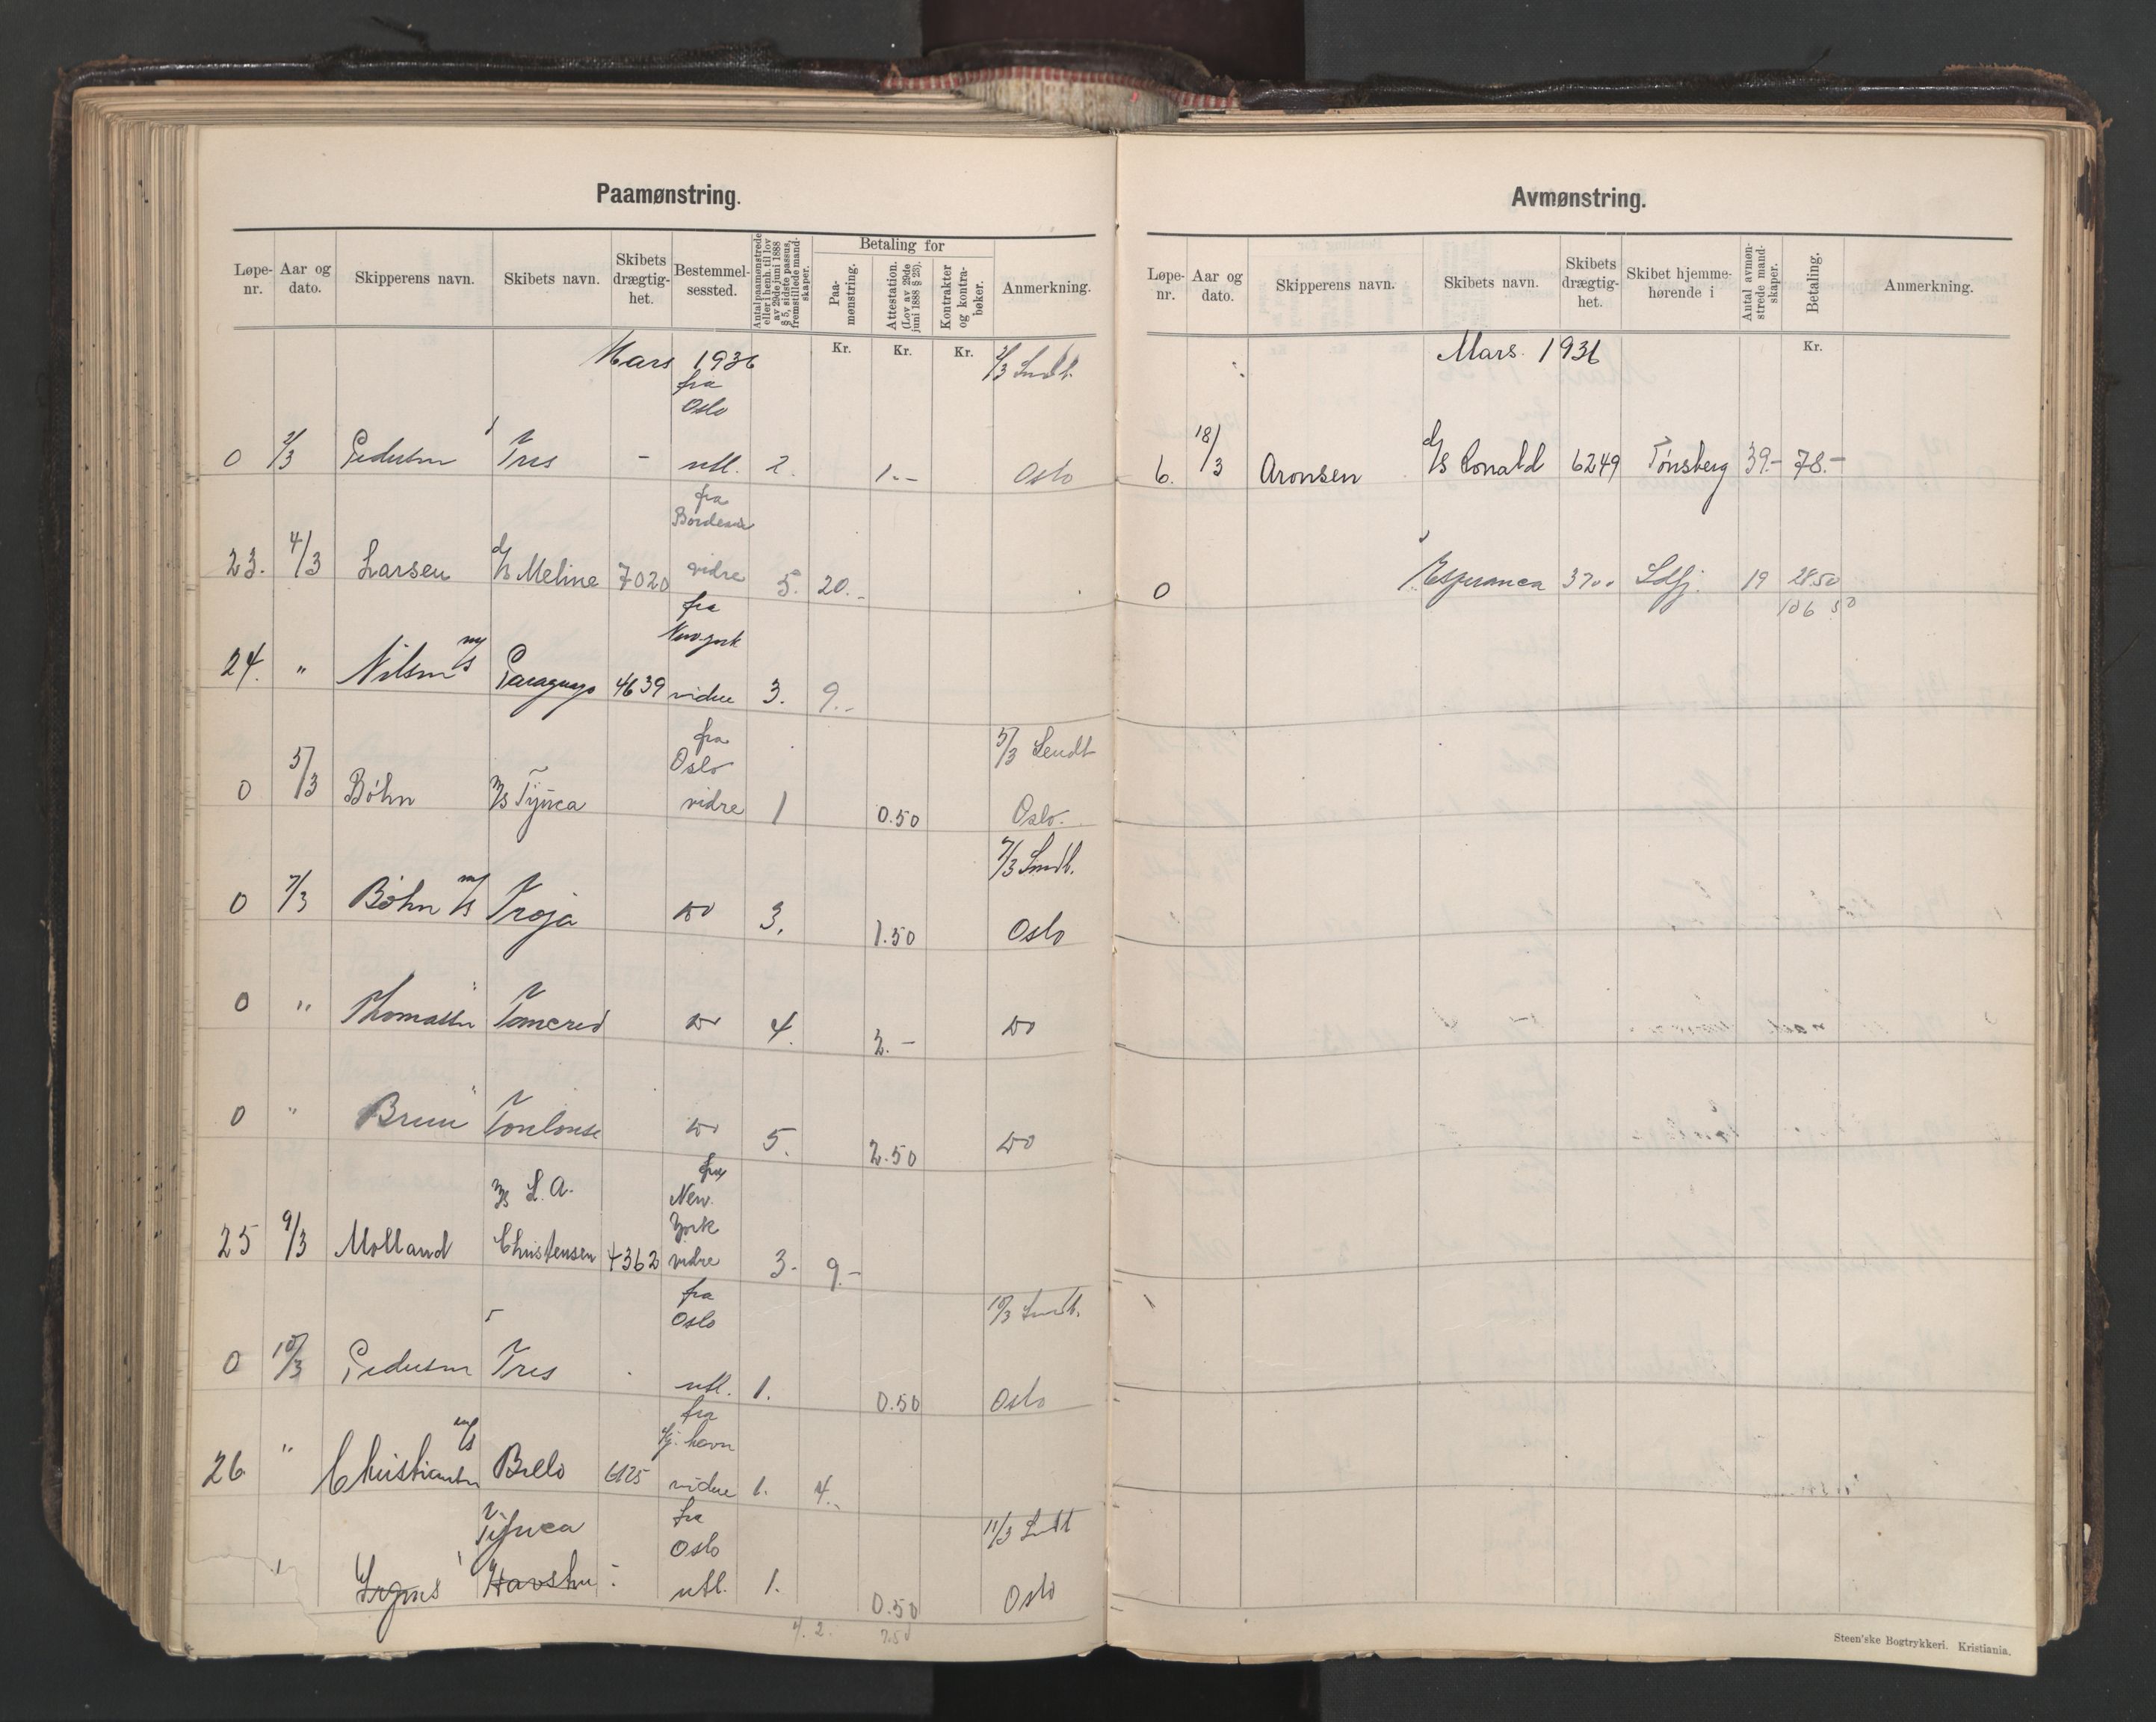 Paamønstring.
Løpe-nr. Aar og dato. Skipperens navn. Skibets navn. Skibets drægtig-het. Bestemmel-sessted. Antal paamønstrede eller i henh. til lov av 29de juni 1888 § 5, sidste passus, fremstillede mand-skaper. Betaling for Paa-mønstring. Attestation. (Lov av 29de juni 1888 § 23). Kontrakter og kontra-bøker. Anmerkning.
Kr. Kr. Kr.
Mars 1936
fra
Oslo
0 2/3 Pedersen Tres - utl. 2. 1.- Oslo
fra
Bordeaux
23. 4/3 Larsen d/s Meline 7020 vidre 5. 20.-
fra
New york
24. " Nilsen m/s Paraguay 4639 vidre 3. 9.-
fra 5/3 Sendt
Oslo
0 5/3 Bøhn m/s Tijuca vidre 1 0.50 Oslo.
7/3 Sendt.
0 7/3 Bøhn m/s Troja do 3. 1.50 Oslo
0 " Thomassen " Tancred do 4. 2.- do
0 " Bruu " Toulouse do 5. 2.50 do
m/s L. A. fra
New.
York
25 9/3 Molland Christensen 4362 vidre 3- 9.-
fra 10/3 Sendt.
Oslo
0 10/3 Pedersen Tres utl. 1. 0.50 Oslo
fra
Kj. havn
26 " Christiansen m/s Brelo 6125 vidre 1. 4.-
Tijuca fra 11/3 Sendt
Oslo
utl. 1. 0.50 Oslo
42. 7.50
Avmønstring.
Løpe-nr. Aar og dato. Skipperens navn. Skibets navn. Skibets drægtig-het. Skibet hjemme-hørende i Antal avmøn-strede mand-skaper. Betaling. Anmerkning.
Kr.
Mars. 1936
6. 18/3 Aronsen d/s Ronald 6249 Tønsberg 39.- 78.-
0 Esperanca 3700 Ldfj. 19 28.50
106 50
Steen'ske Bogtrykkeri. Kristiania.